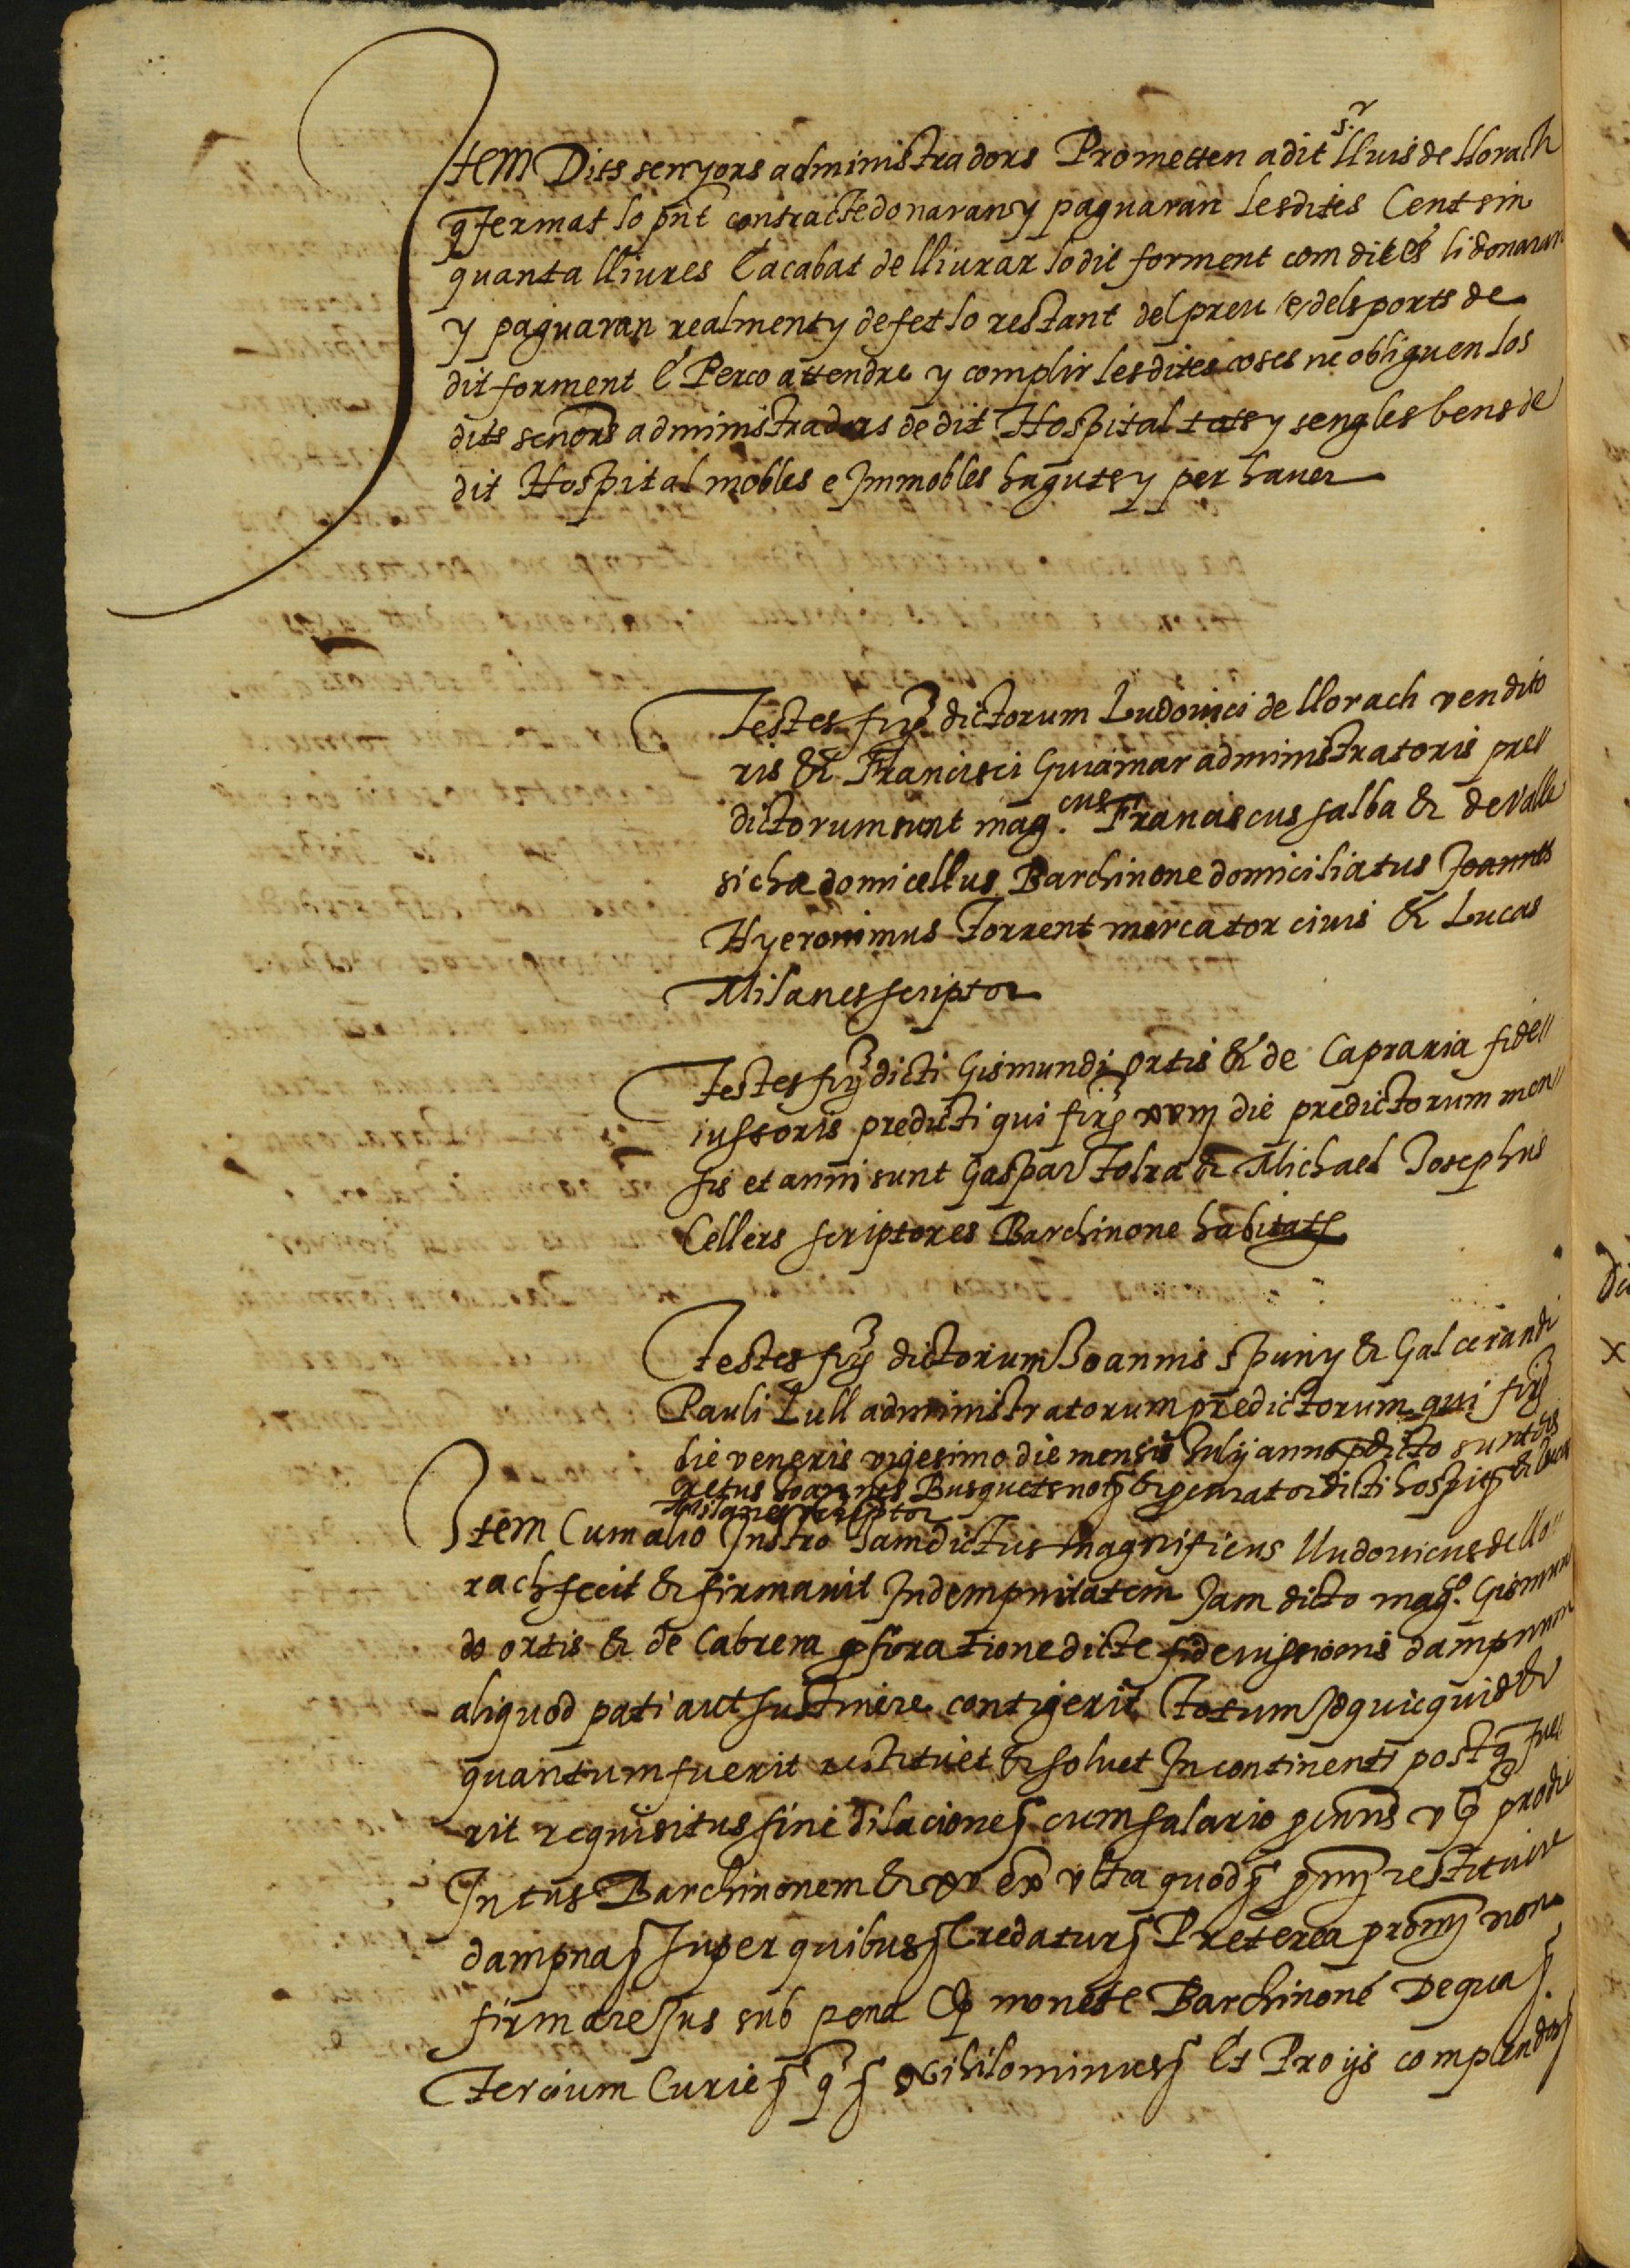 Item Dits senyors administradors Prometten a dit s.r lluis de llorach
q fermat lo pnt contracte donaran y paguaran les dites Cent sin
quanta lliures E acabat de lliurar lo dit forment com dit es li donaran
y paguaran realment y de fet lo restant del preu e dels ports de
dit forment E Perço attendre y complir les dites coses ne obliguen los
dits señors administradors de dit Hospital tots y sengles bens de
dit Hospital mobles e Immobles haguts y per haver
Testes firᵉ dictorum Ludovici de llorach vendito
ris & Francisci Guiamar administratoris pre//
dictorum sunt mag.cus Franciscus salba & de Valle
sicha domicellus Barchinone domiciliatus Joannes
Hyeronimus Torrent mercator civis & Lucas
Milanes scriptor
Testes firᵉ dicti Gismundi Ortis & de Capraria fide//
iussoris predicti qui firᵉ die predictorum men//
sis et anni sunt Gaspar Tolra & Michael Josephus
Cellers scriptores Barchinone habitats
Testes firᵉ dictorum Joannis spuny & Galcerandi
Pauli Lull administratorum predictorum qui firᵉ
die veneris vigesimo die mensis Julij anno pdicto sunt dis
cretus Joannes Busquets not & pcurator dicti hospit & Lucas
Milanes scriptor
Item Cum alio Instro Jamdictus magnificus lludovicus de llo//
rach fecit & firmavit Indempnitatem Jam dicto mag.co Gismun
do ortis & de Cabrera q si ratione dicte fideiussionis dampnum
aliquod pati aut sustinere contigerit Totum Id quicquid &
quantum fuerit restituet & solvet Incontinenti postq fue
rit requisitus sine dilacione cum salario pcuris v prodie
Intus Barchinonem & x ex vltra quod prom restituere
dampna super quibus Credatur Preterea prom non
firmare Jus sub pena monete Barchinone De qua
Tercium Curie q Nihilominus Et Pro ijs complendis